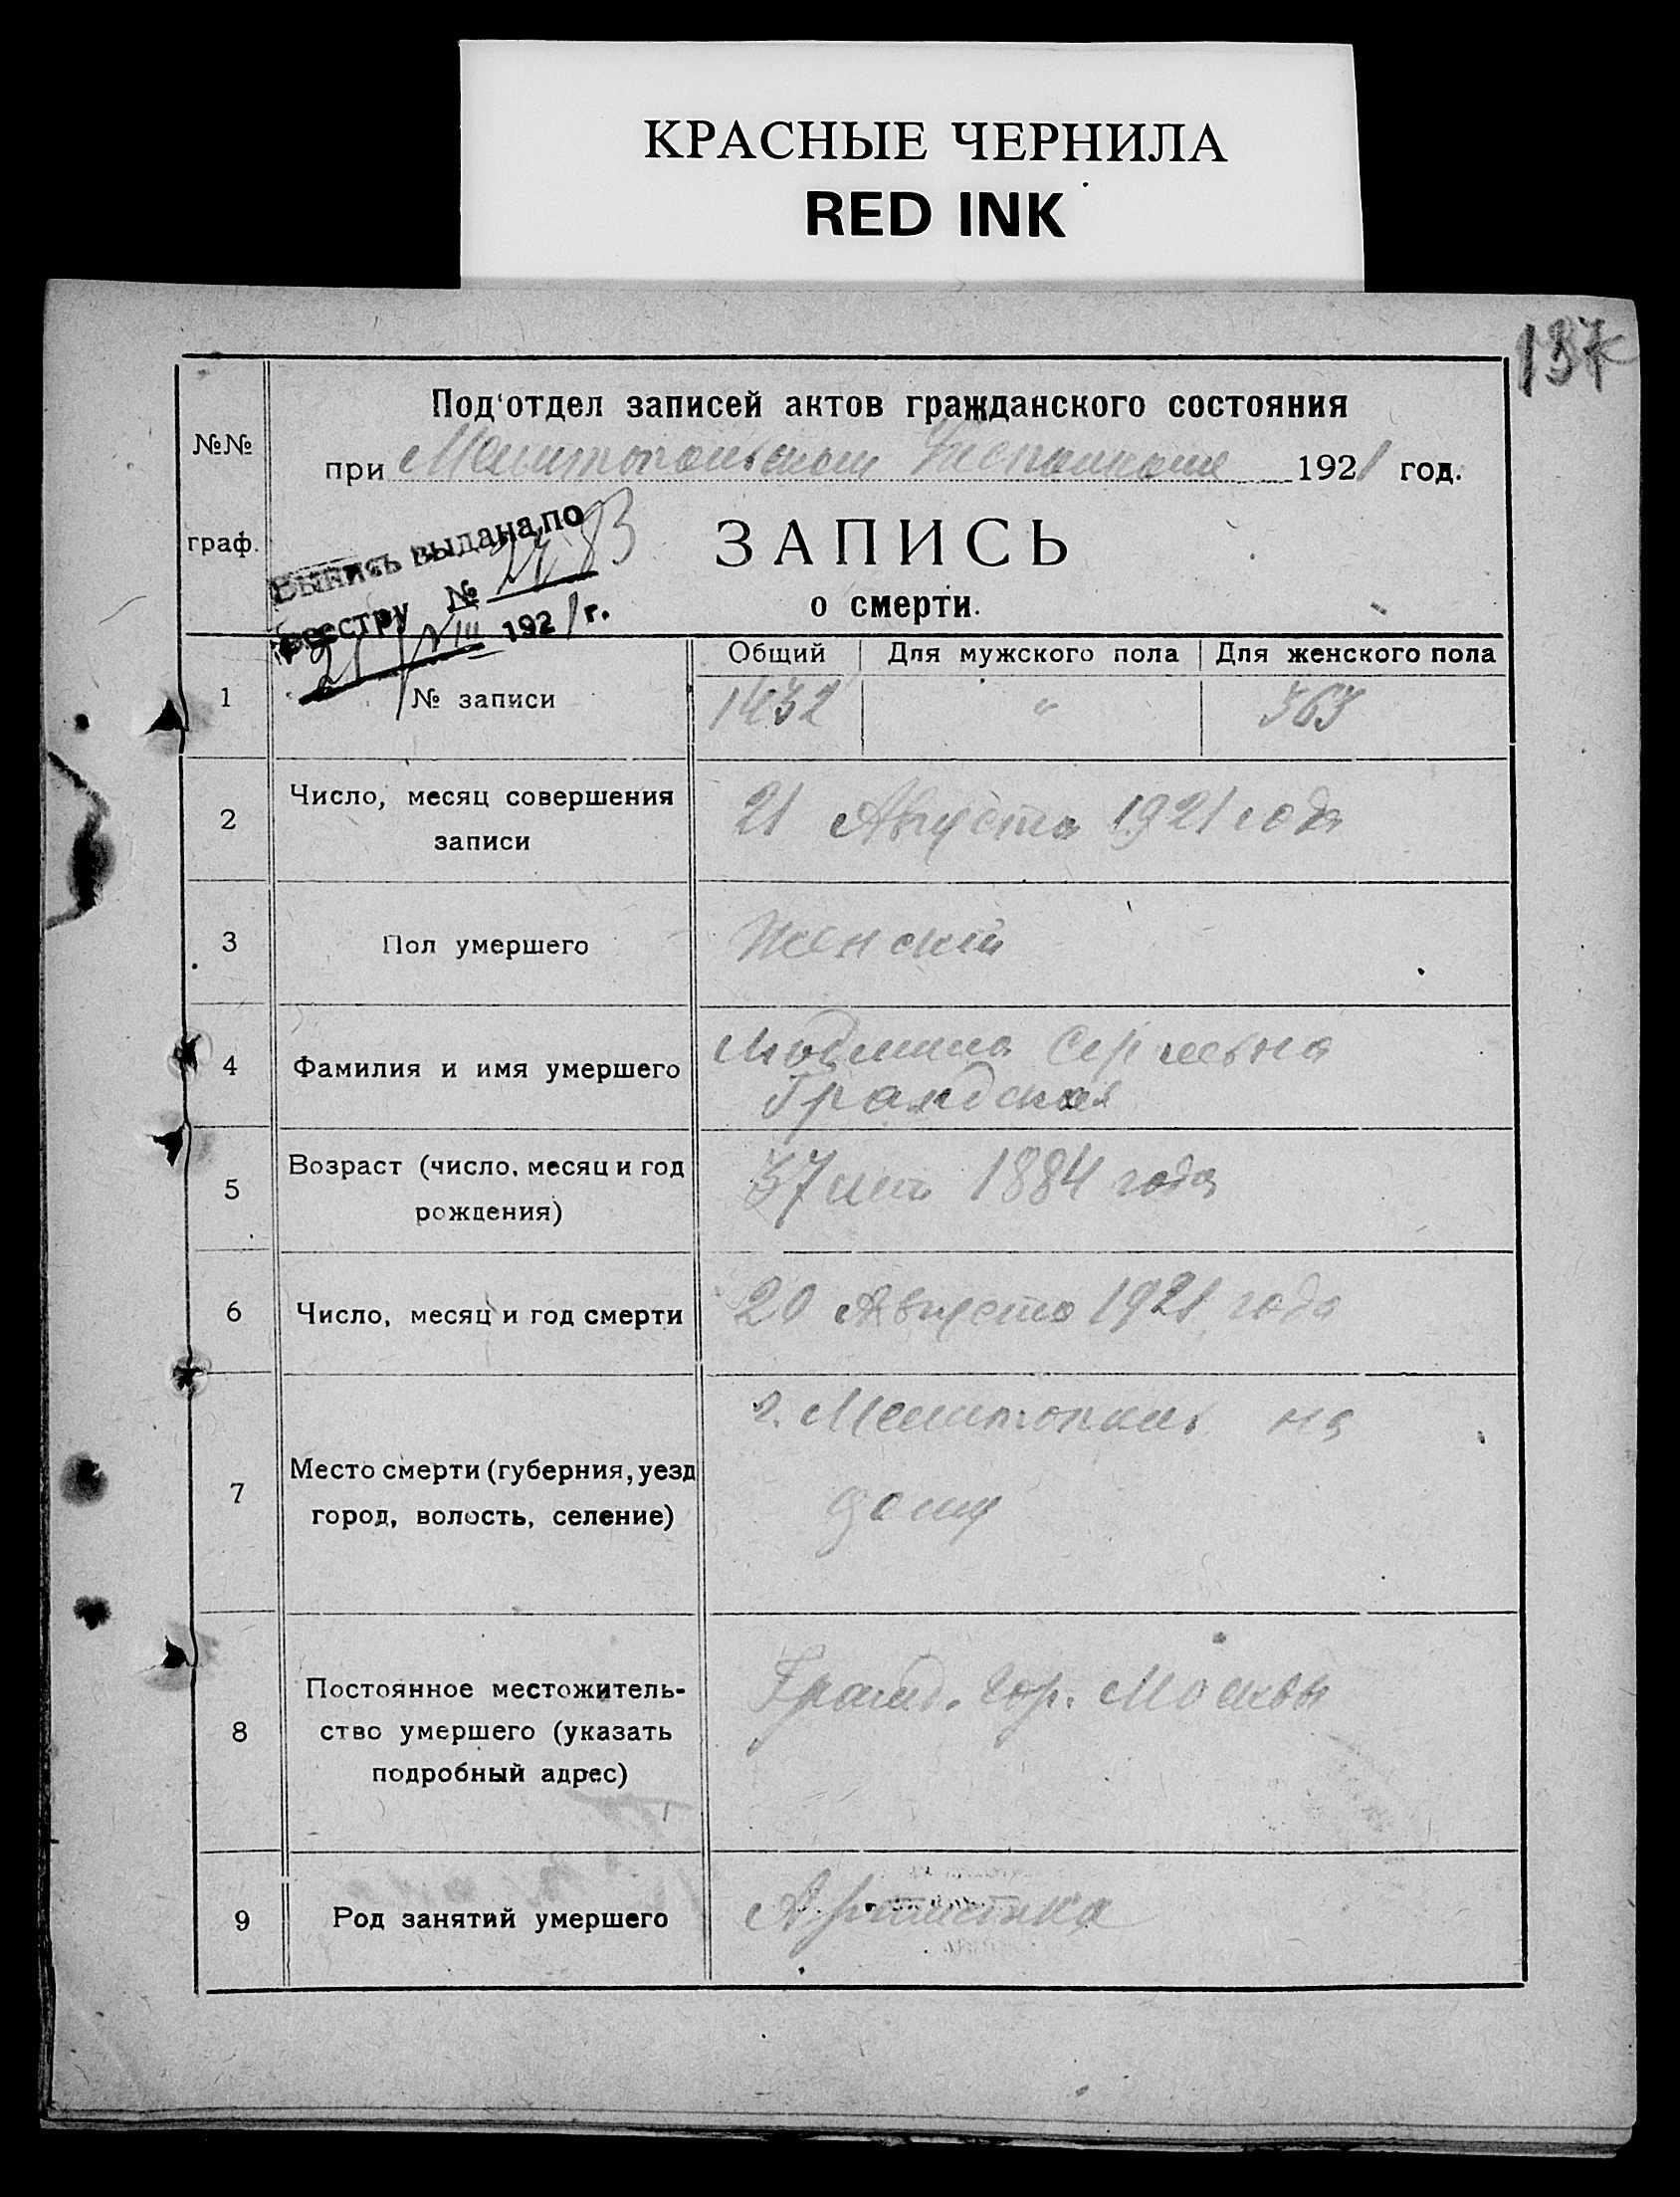 КРАСНЫЕ ЧЕРНИЛА
RED INK
137
№№
граф.
Под'отдел записей актов гражданского состояния
при Мелитопольском Исполкоме 1921 год.
Выпись выдана по
реестру № 2483
21/VIII 1921 г.
ЗАПИСЬ
о смерти.
Общий Для мужского пола Для женского пола
1 № записи 1432 " 563
2 Число, месяц совершения
записи
21 Августа 1921 года
3 Пол умершего Женский
4 Фамилия и имя умершего
Людмила Сергеевна
5 Возраст (число, месяц и год
рождения)
37 лет 1884 года
6 Число, месяц и год смерти 20 Августа 1921 года
7 Место смерти (губерния, уезд
город, волость, селение)
г. Мелитополь на
дому
8 Постоянное местожитель-
ство умершего (указать
подробный адрес)
Гражд. гор. Москвы
9 Род занятий умершего Артистка